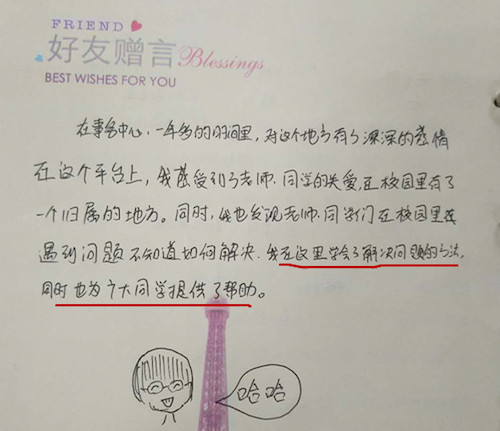 FRIEND
好友赠言 Blessings
BEST WISHES FOR YOU
在事务中心,一年多的时间里,对这个地方有了深深的感情
在这个平台上,我感受到了老师.同学的关爱,在校园里有了
一个归属的地方。同时,我也发现老师.同学们在校园里在
遇到问题不知道如何解决.我在这里学会了解决问题的方法,
同时也为广大同学提供了帮助。
哈哈